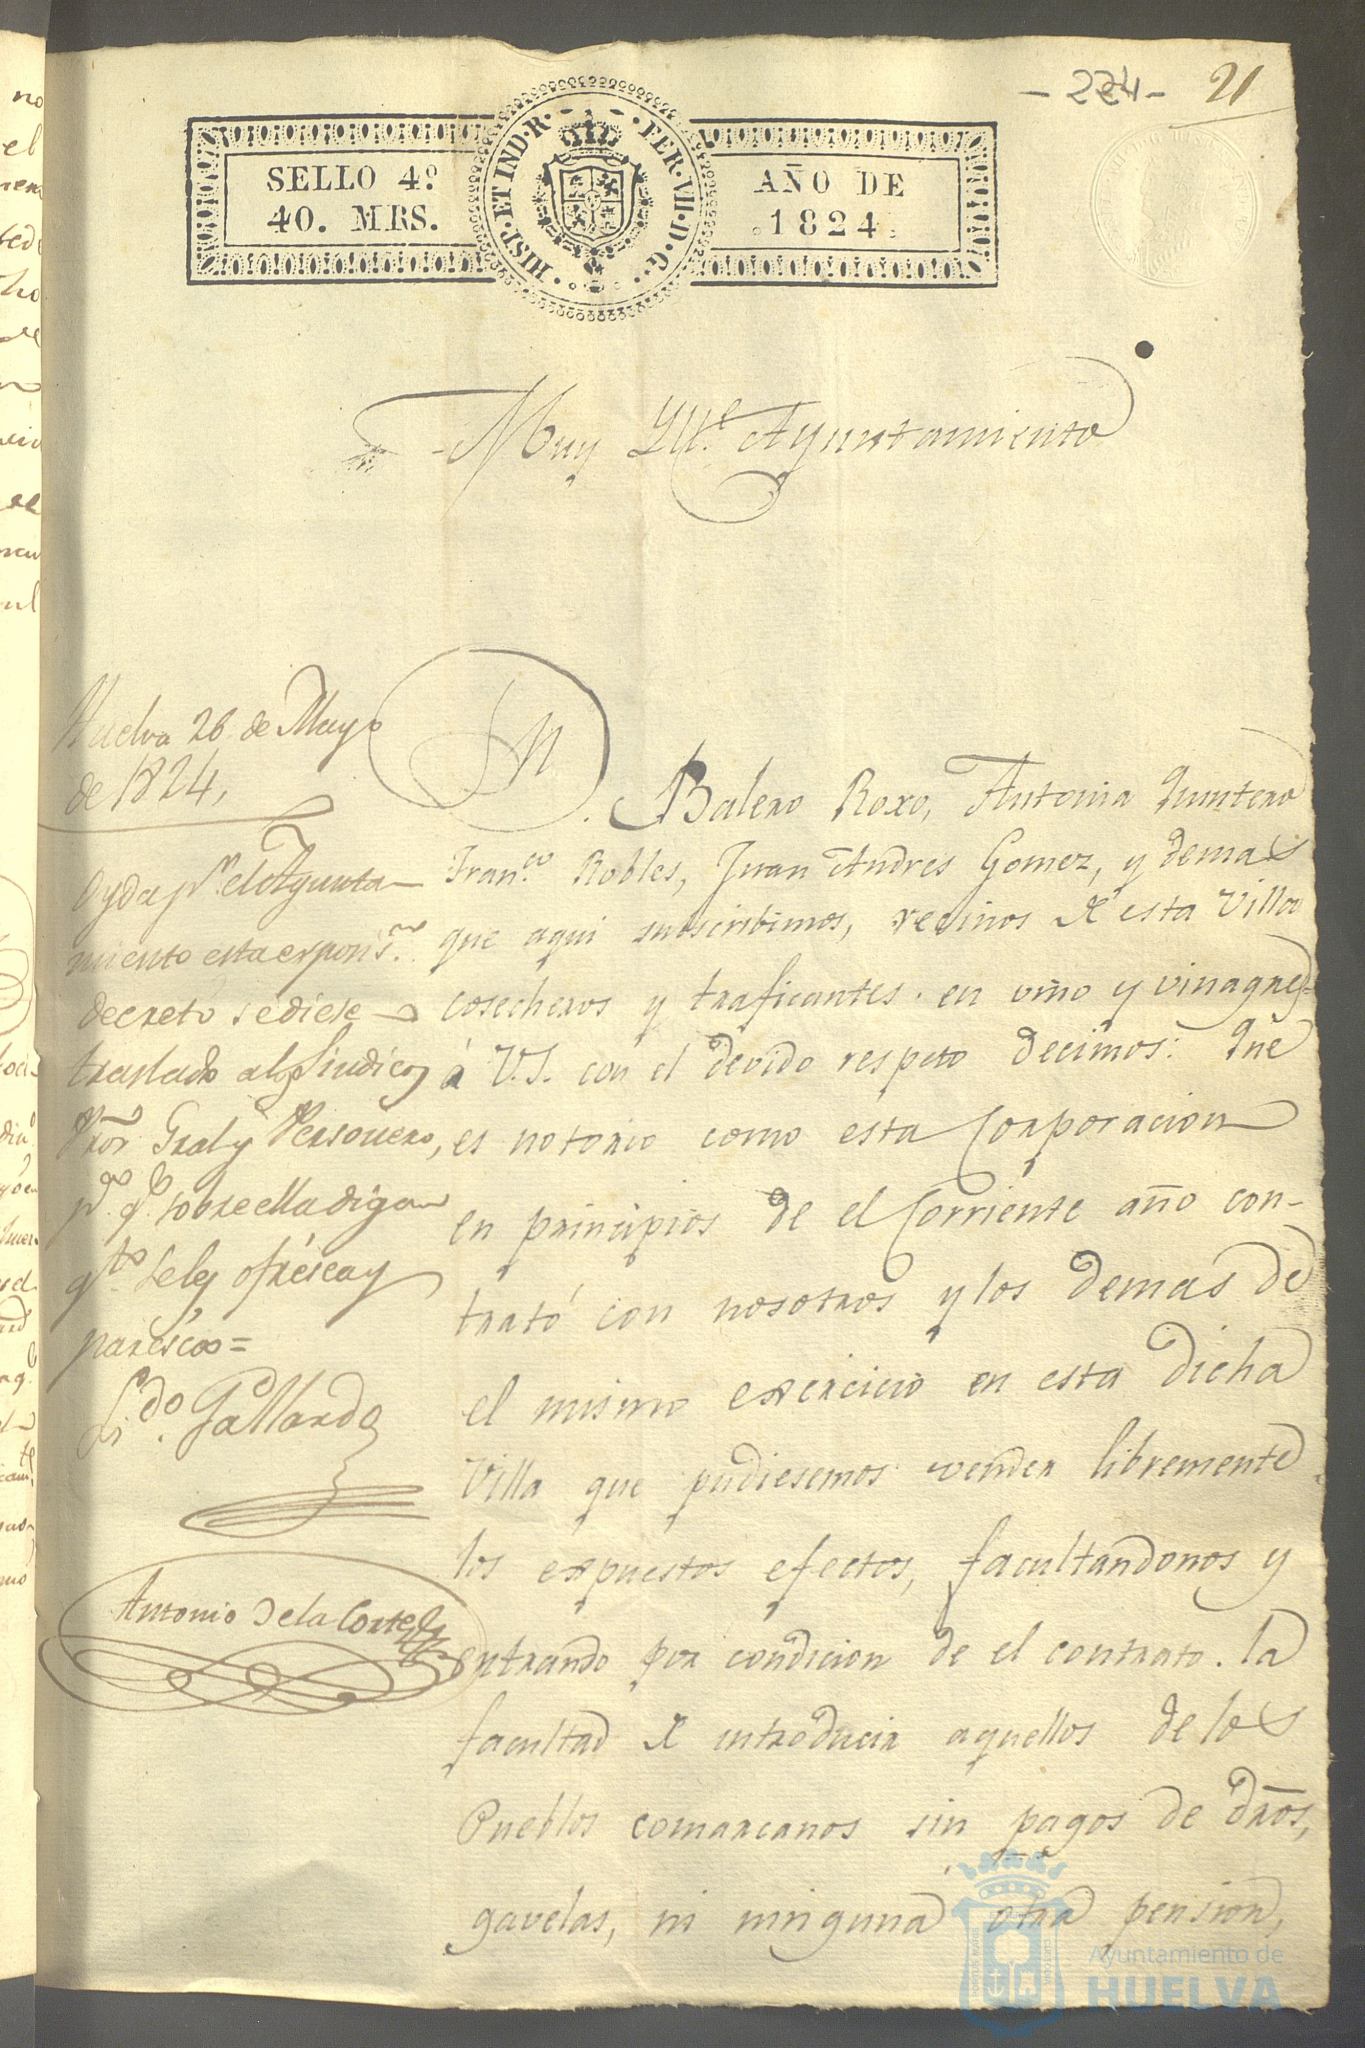 - 224 - 21
SELLO 4º
40. MRS.
HISP. ET IND. R. FER. VII. D. G.
AÑO DE
1824
Muy Ylle. Ayuntamiento
Huelva 26 de Mayo
de 1824,
Oyda pr. el Ayunta
miento esta exposn.
decretó se diese
traslado al Sindico
Pror Gral y Personero,
pa. qe. sobre ella digan
qto. se les ofresca y
paresca =
Ldo. Gallardo
Antonio De la Corte
Dn. Balero Roxo, Antonia Quintero
Franco. Robles, Juan Andres Gomez, y demas
que aqui suscribimos, vecinos de esta Villa
cosecheros y traficantes en vino y vinagre
á V.S. con el devido respeto decimos: Que
es notorio como esta Corporacion
en principios de el Corriente año con-
trató con nosotros y los demas de
el mismo exercicio en esta dicha
Villa que pudiesemos vender libremente
los expuestos efectos, facultandonos y
entrando por condicion de el contrato la
facultad de introducir aquellos de los
Pueblos comarcanos sin pagos de dros,
gavelas, ni ninguna otra pension,
Ayuntamiento de
HUELVA